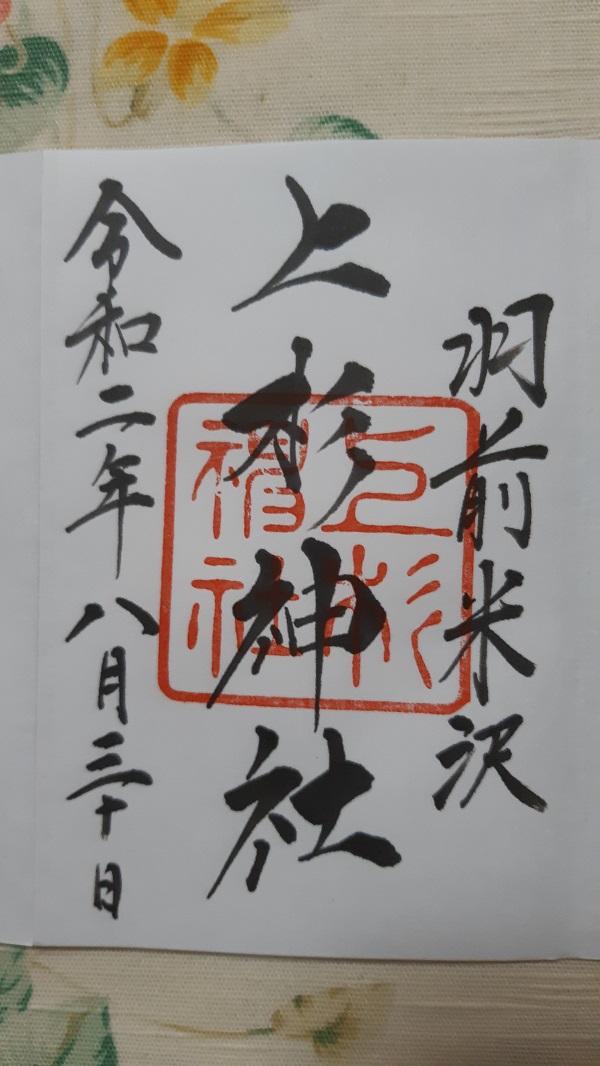 羽前米沢
上杉神社
令和二年八月三十日
上杉
神社